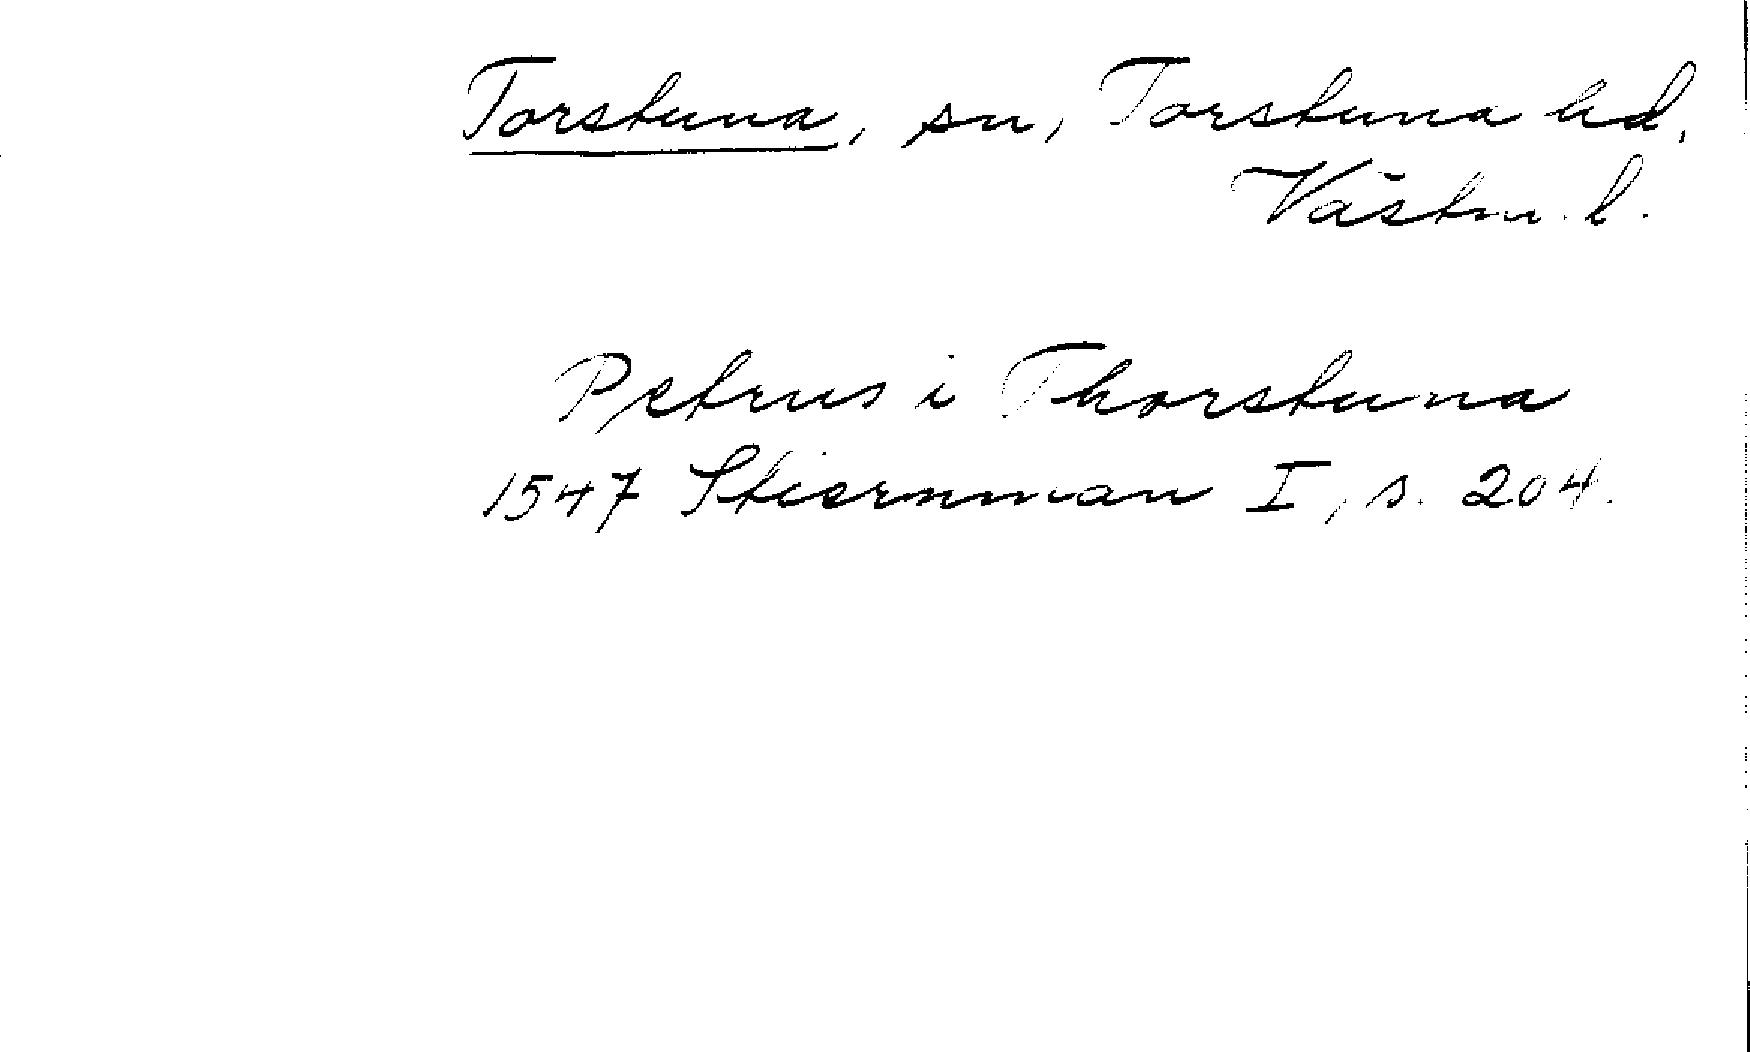 Torstuna, sn, Torstuna hd,
Västm. l.
Petrus i Thorstuna
1547 Stiernman I, s. 204.